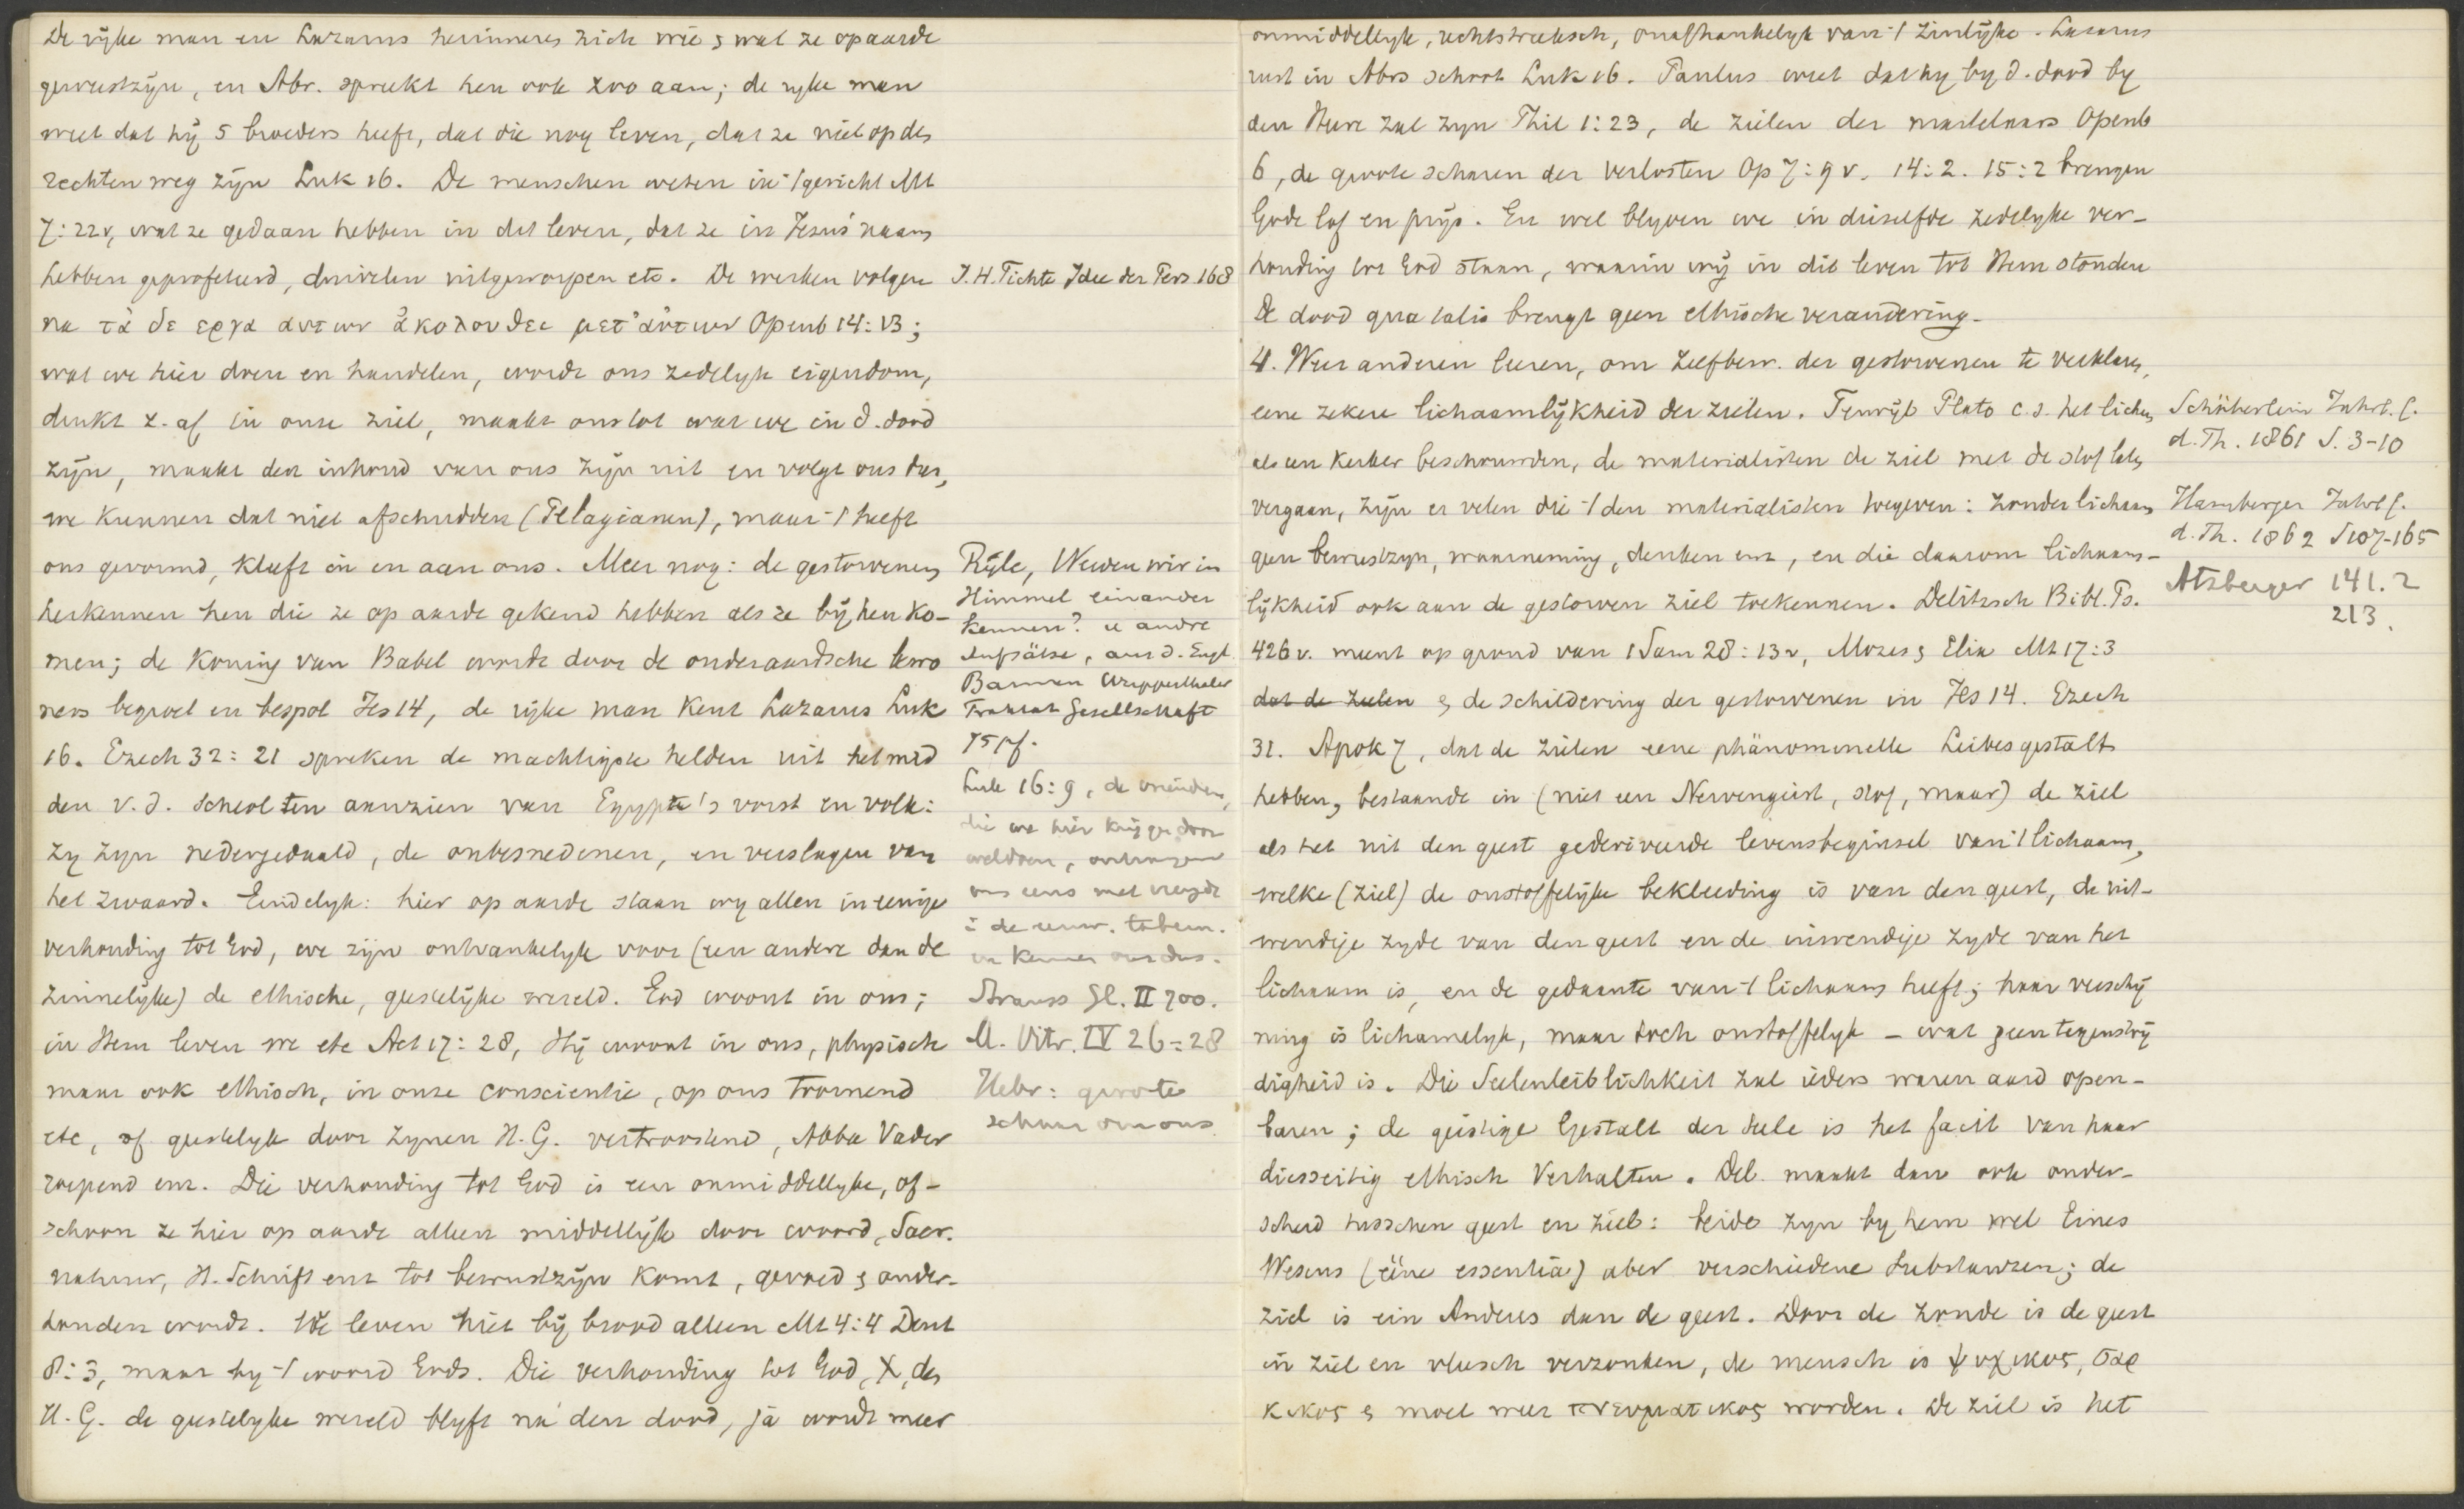 De rijke man en Lazarus herinneren zich wie & wat ze op aarde
geweest zijn, en Abr. spreekt hen ook zoo aan; de ryke man
weet dat hij 5 broeders heeft, dat die nog leven, dat ze niet op den
rechten weg zijn Luk 16. De menschen weten in 't gericht Mt
7:22v, wat ze gedaan hebben in dit leven, dat ze in Jezus' naam
hebben geprofeteerd, duivelen uitgeworpen etc. De werken volgen
na τὰ δε εργα αυτων ἀκολουθει μετ' αὐτων Openb 14:13;
wat we hier doen en handelen, wordt ons zedelyk eigendom,
drukt z. af in onze ziel, maakt ons tot wat we in d. dood
zijn, maakt den inhoud van ons zijn uit en volgt ons dus,
we kunnen dat niet afschudden (Pelagianen), maar 't heeft
ons gevormd, kleeft in en aan ons. Meer nog: de gestorvenen
herkennen hen die ze op aarde gekend hebben als ze bij hen ko-
men; de koning van Babel wordt door de onderaardsche bewo
ners begroet en bespot Jes 14, de rijke man kent Lazarus Luk
16. Ezech 32:21 spreken de machtigste helden uit het mid
den v. d. Scheol ten aanzien van Egypte's vorst en volk:
zy zyn nedergedaald, de onbesnedenen, en verslagen van
het zwaard. Eindelyk: hier op aarde staan wy allen in eenige
verhouding tot God, we zijn ontvankelyk voor (een andere dan de
zinnelijke) de ethische, geestelijke wereld. God woont in ons;
in Hem leven we etc Act 17:28, Hij woont in ons, physisch
maar ook ethisch, in onze conscientie, op ons toornend
etc, of geestelyk door zynen H. G. vertroostend, Abba Vader
roepend enz. Die verhouding tot God is een onmiddellyke, of-
schoon ze hier op aarde alleen middellijk door woord, Sacr.
natuur, H. Schrift enz tot bewustzijn komt, gevoed & onder-
houden wordt. We leven niet bij brood alleen Mt 4:4 Deut
8:3, maar by 't woord Gods. Die verhouding tot God, X, den
H. G. de geestelyke wereld blyft na den dood, ja wordt meer
J. H. Fichte Idee der Pers. 168
Ryle, Werden wir im
Himmel einander
kennen? u andre
Aufsätze, aus d. Engl.
Barmen Wupperthaler
Traktat Gesellschaft
75 pf.
Luk 16:9, de vrienden,
die we hier krijgen door
weldoen, ontvangen
ons eens met vreugde
i de eeuw. tabern.
en kennen ons dus.
Strauss Gl. II 700.
M. Vitr. IV 26-28
Hebr: groote
schaar om ons
onmiddellyk, rechtstreeksch, onafhankelyk van 't zinlijke. Lazarus
rust in Abrs schoot Luk 16. Paulus weet dat hy by d. dood by
den Heere zal zyn Phil 1:23, de zielen der martelaars Openb
6, de groote scharen der verlosten Op 7:9 v. 14:2. 15:2 brengen
Gode lof en prijs. En wel blyven we in diezelfde zedelyke ver-
houding tot God staan, waarin wij in dit leven tot Hem stonden
De dood qua talis brengt geen ethische verandering.
4. Weer anderen leeren, om zelfbew. der gestorvenen te verklaren,
eene zekere lichaamlijkheid der zielen. Terwijl Plato c. s. het lichaam
als een kerker beschouwden, de materialisten de ziel met de stof laten
vergaan, zijn er velen die 't den materialisten toegeven: zonder lichaam
geen bewustzyn, waarneming, denken enz, en die daarom lichaam-
lijkheid ook aan de gestorven ziel toekennen. Delitzsch Bibl. Ps.
426 v. meent op grond van 1 Sam 28:13v, Mozes & Elia Mt 17:3
dat de zielen & de schildering der gestorvenen in Jes 14. Ezech
32. Apok 7, dat de zielen eene phänomenelle Leibesgestalt
hebben, bestaande in (niet een Nervengeist, stof, maar) de ziel
als het uit den geest gederiveerde levensbeginsel van 't lichaam,
welke (ziel) de onstoffelijke bekleeding is van den geest, de uit-
wendige zyde van den geest en de inwendige zyde van het
lichaam is, en de gedaante van 't lichaam heeft; haar verschij
ning is lichamelyk, maar toch onstoffelyk - wat geen tegenstrij
digheid is. Die Seelenleiblichkeit zal ieders waren aard open-
baren; de geistige Gestalt der Seele is het facit van haar
diesseitig ethisch Verhalten. Del. maakt dan ook onder-
scheid tusschen geest en ziel: beide zyn by hem wel Eines
Wesens (éine essentia) aber verschiedene Substanzen; de
ziel is ein Anderes dan de geest. Door de zonde is de geest
in ziel en vleesch verzonken, de mensch is ψυχικος, σαρ
κικος & moet weer πνευματικος worden. De ziel is het
Schöberlein Jahrb. f.
d. Th. 1861 S. 3-10
Hamberger Jahrb f.
d. Th. 1862 S 107-165
Atzberger 141. 2
213.